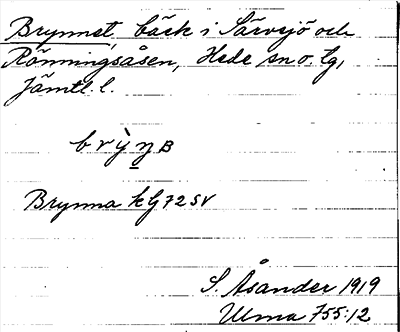 Brynnet, bäck i Särvsjö och
Rönningsåsen, Hede sn o. tg,
Jämtl. l.
brỳn̲B
Brynna kG72SV
S. Åsander 1919
Ulma 755:12